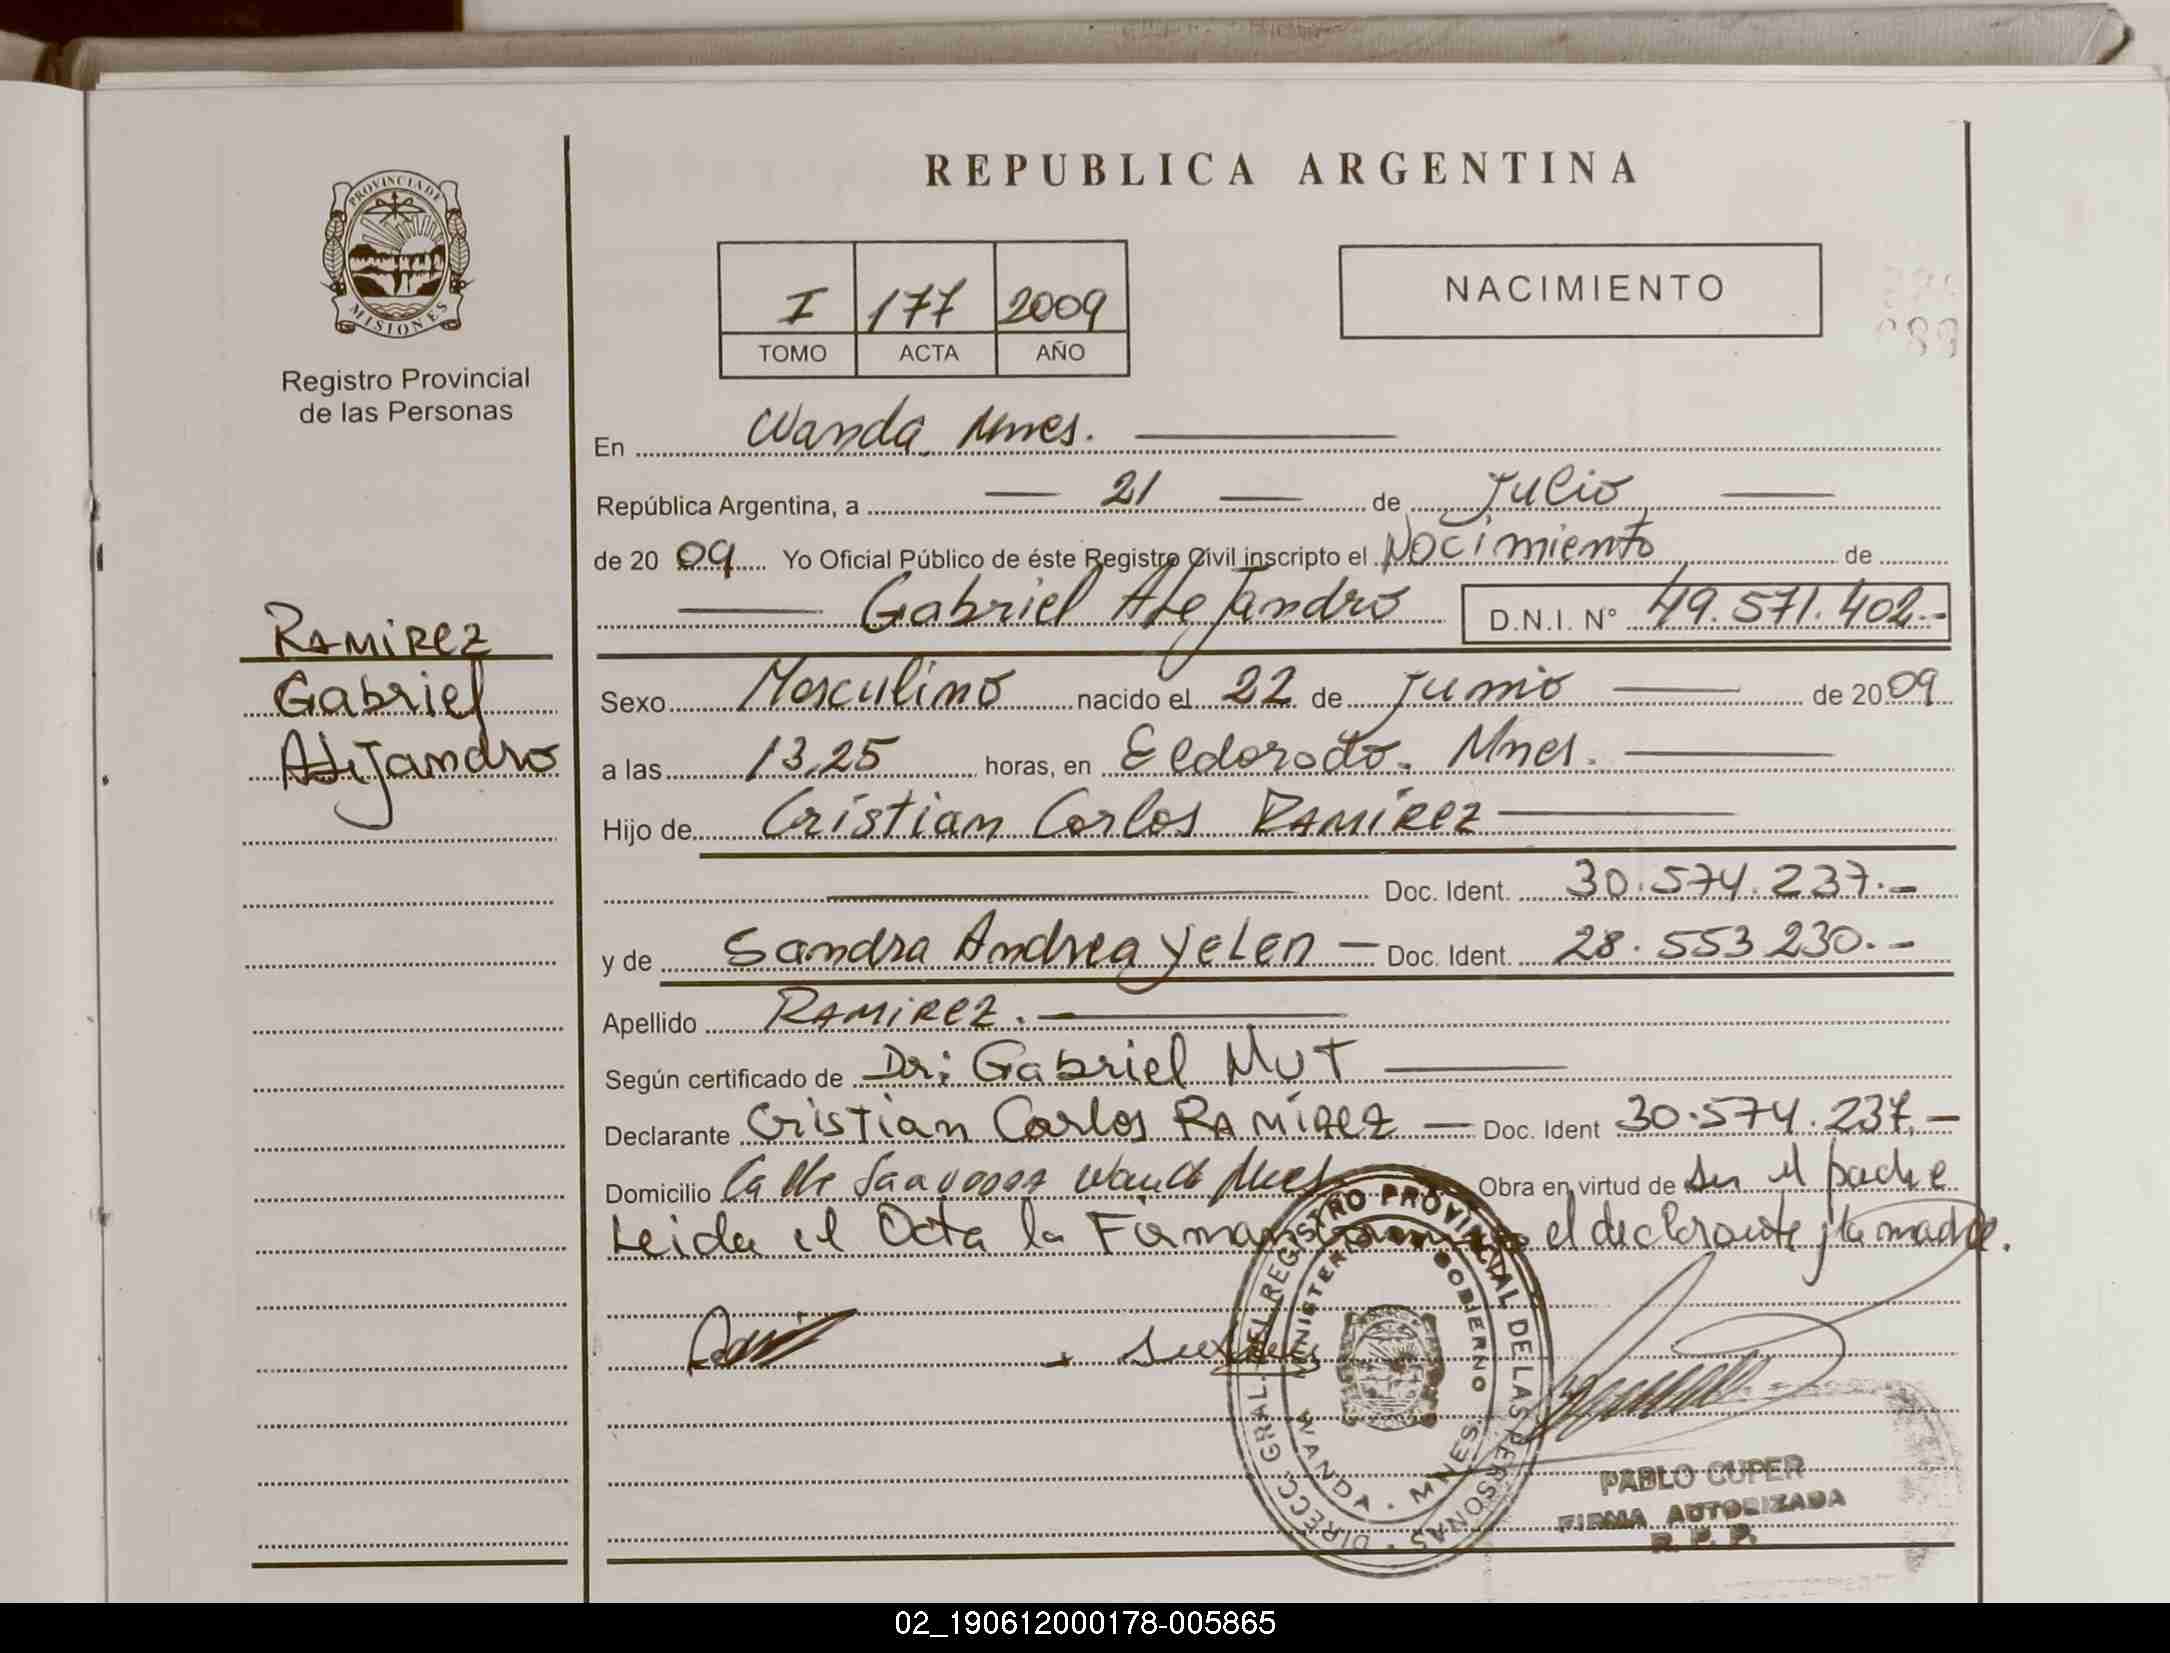 REPUBLICA ARGENTINA
PROVINCIA DE
MISIONES
Registro Provincial
de las Personas
I 177 2009
TOMO ACTA AÑO
NACIMIENTO
En Wanda, Mnes.
República Argentina, a 21 de Julio
de 20 09 Yo Oficial Público de éste Registro Civil inscripto el Nacimiento de
Gabriel Alejandro D.N.I. N° 49.571.402.-
RAMIREZ
Gabriel
Alejandro
Sexo Masculino nacido el 22 de Junio de 20 09
a las 13,25 horas, en Eldorado. Mnes.
Hijo de Cristian Carlos RAMIREZ
Doc. Ident. 30.574.237.-
y de Sandra Andrea Yelen — Doc. Ident. 28.553 230.-
Apellido RAMIREZ.
Según certificado de Dr: Gabriel MUT
Declarante Cristian Carlos RAMIREZ — Doc. Ident 30.574.237.-
Domicilio Calle Wanda Mnes Obra en virtud de ser el padre
Leida el Acta la Firman el declarante y la madre.
DIRECC. GRAL. DEL REGISTRO PROVINCIAL DE LAS PERSONAS
MINISTER GOBIERNO
WANDA - MNES
PABLO CUPER
FIRMA AUTORIZADA
R. P. P.
02_190612000178-005865